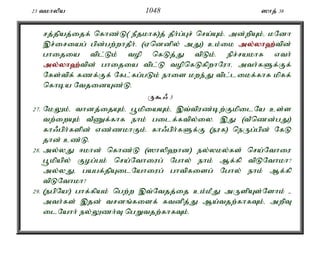 23 வமாலிய 1048 ஸாத் 38
சத்தியத்தைக் கொண்டு( நீதமாகத்) தீர்ப்புச் செய்யும். அன்றியும், மனோ
இச்சையைப் பின்பற்றாதீர். (ஏனெனில் அது) உம்மை அல்லாஹ்வின்
பாதையை விட்டும் வழி கெடுத்து விடும். நிச்சயமாக எவர்
அல்லாஹ்வின் பாதையை விட்டு வழிகெடுகிறாரோ, அவர்களுக்குக்
கேள்விக் கணக்குக் கேட்கப்படும் நாளை மறந்து விட்டமைக்காக மிகக்
கொடிய வேதனையுண்டு.
ருகூஃ 3
27. மேலும், வானத்தையும், பூமியையும், இவ்விரண்டிற்குமிடையே உள்ள
வற்றையும் வீணுக்காக நாம் படைக்கவில்லை. இது (வீணென்பது)
காஃபிர்களின் எண்ணமாகும். காஃபிர்களுக்கு (நரக) நெருப்பின் கேடு
தான் உண்டு.
28. அல்லது ஈமான் கொண்டு (ஸாலிஹான) நல்லமல்கள் செய்வோரை
பூமியில் குழப்பம் செய்வோரைப் போல் நாம் ஆக்கி விடுவோமா?
அல்லது, பயபக்தியுடையோரைப் பாவிகளைப் போல் நாம் ஆக்கி
விடுவோமா?
29. (நபியே!) பாக்கியம் பெற்ற இவ்வேதத்தை உம்மீது அருளியுள்ளோம் -
அவர்கள் இதன் வசனங்களைக் கவனித்து ஆய்வதற்காகவும், அறிவு
டையோர் நல்லுணர்வு பெறுவதற்காகவும்.